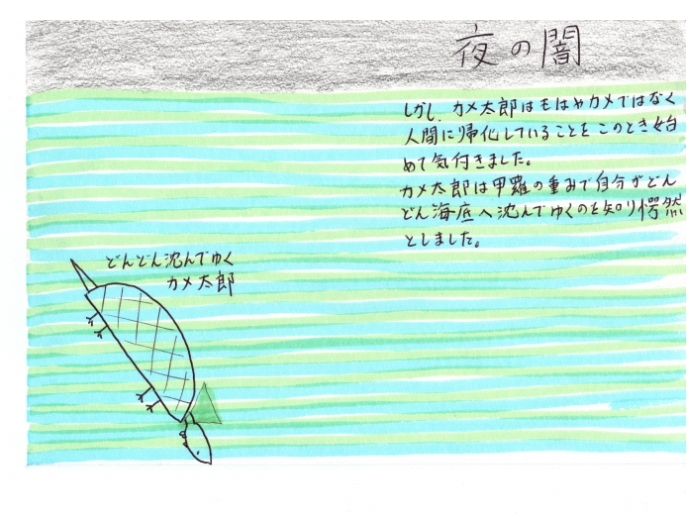 夜の闇
しかし、カメ太郎はもはやカメではなく
人間に帰化していることをこのとき始
めて気付きました。
カメ太郎は甲羅の重みで自分がどん
どん海底へ沈んでゆくのを知り愕然
としました。
どんどん沈んでゆく
カメ太郎